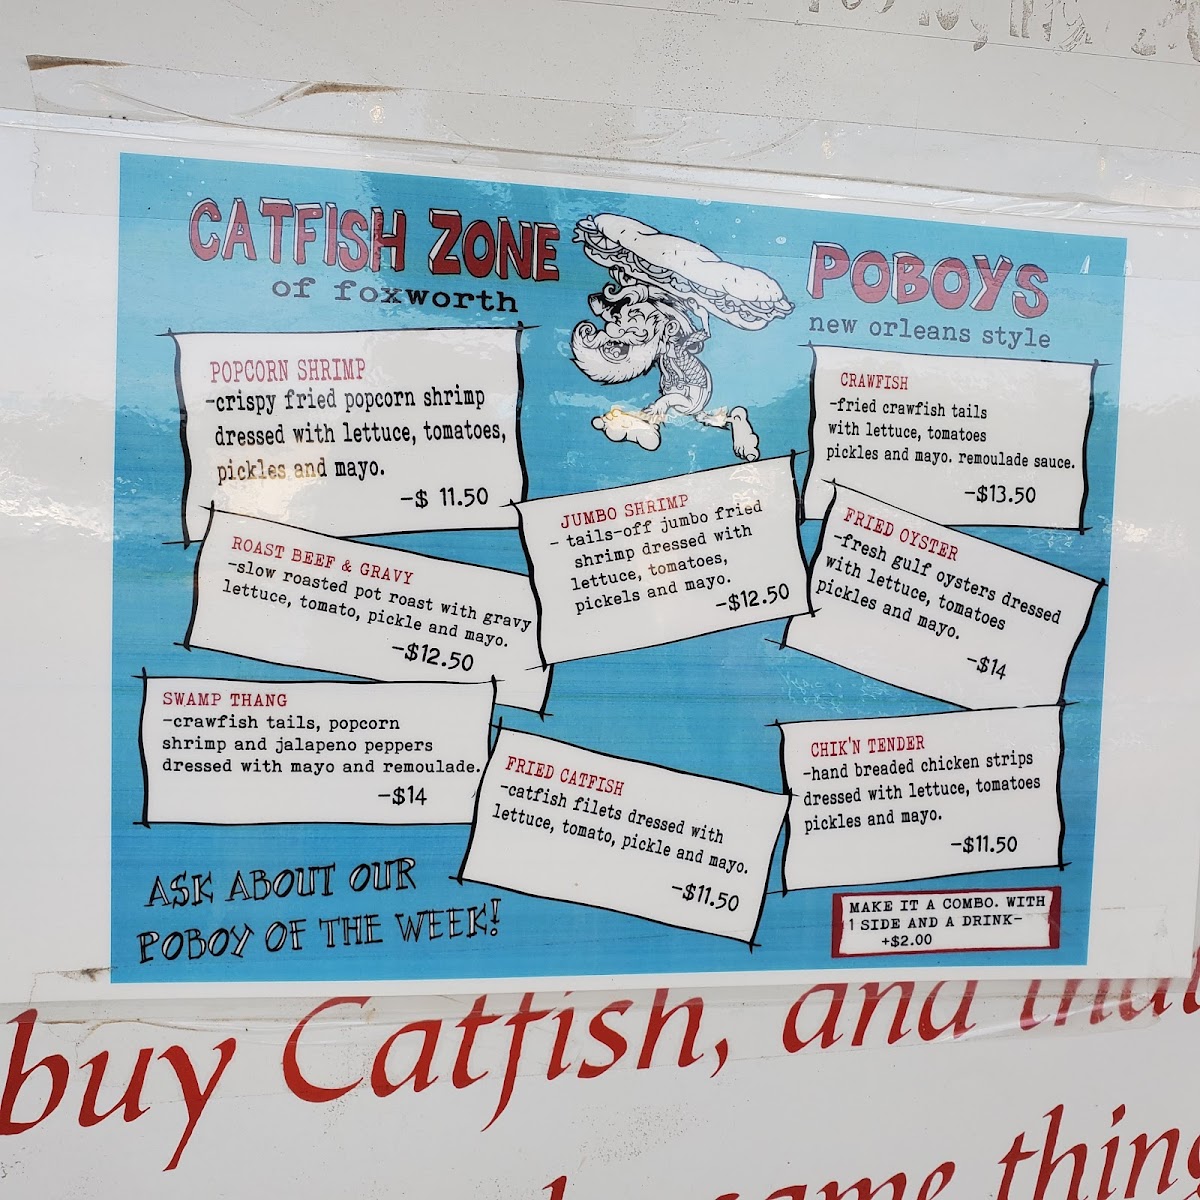 CATFISH ZONE
of foxworth
POBOYS
new orleans style
POPCORN SHRIMP
-crispy fried popcorn shrimp
dressed with lettuce, tomatoes,
pickles and mayo.
-$ 11.50
ROAST BEEF & GRAVY
-slow roasted pot roast with gravy
lettuce, tomato, pickle and mayo.
-$12.50
SWAMP THANG
-crawfish tails, popcorn
shrimp and jalapeno peppers
dressed with mayo and remoulade.
-$14
JUMBO SHRIMP
- tails-off jumbo fried
shrimp dressed with
lettuce, tomatoes,
pickels and mayo.
-$12.50
FRIED CATFISH
-catfish filets dressed with
lettuce, tomato, pickle and mayo.
-$11.50
CRAWFISH
-fried crawfish tails
with lettuce, tomatoes
pickles and mayo. remoulade sauce.
-$13.50
FRIED OYSTER
-fresh gulf oysters dressed
with lettuce, tomatoes
pickles and mayo.
-$14
CHIK'N TENDER
-hand breaded chicken strips
dressed with lettuce, tomatoes
pickles and mayo.
-$11.50
ASK ABOUT OUR
POBOY OF THE WEEK!
MAKE IT A COMBO. WITH
1 SIDE AND A DRINK-
+$2.00
buy Catfish, and that
same thing